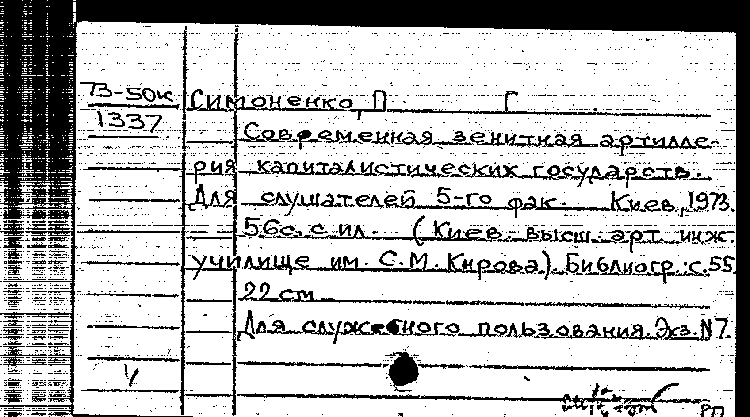 73-50к Симоненко, П Г
1337
Современная зенитная артилле-
рия капиталистических государств.
Для слушателей 5-го фак. Киев, 1973.
56с. с ил. (Киев. высш. арт. инж.
училище им. С.М. Кирова). Библиогр.: с.55
22 см
Для служебного пользования. Экз. N7.